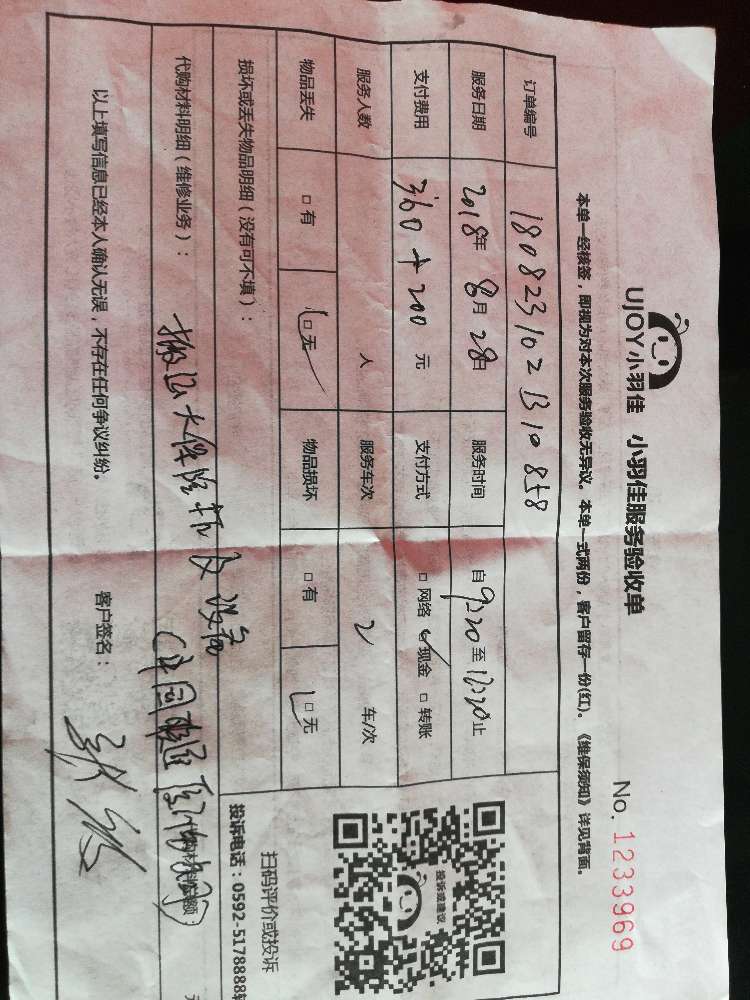 UJOY小羽佳 小羽佳服务验收单
No. 1233969
本单一经核签，即视为对本次服务验收无异议。本单一式两份，客户留存一份(红)。《维保须知》详见背面。
订单编号 1808231021310858
服务日期 2018年 8月 28日 服务时间 自 9:20 至 12:20 止
支付费用 360+200 元 支付方式 □ 网络 ☑ 现金 □ 转账
服务人数 人 服务车次 2 车/次
物品丢失 □ 有 ☑ 无 物品损坏 □ 有 ☑ 无
损坏或丢失物品明细（没有可不填）：
代购材料明细（维修业务）：
代购材料金额： 元
以上填写信息已经本人确认无误，不存在任何争议纠纷。 客户签名：
投诉或建议
扫码评价或投诉
投诉电话：0592-5178888转